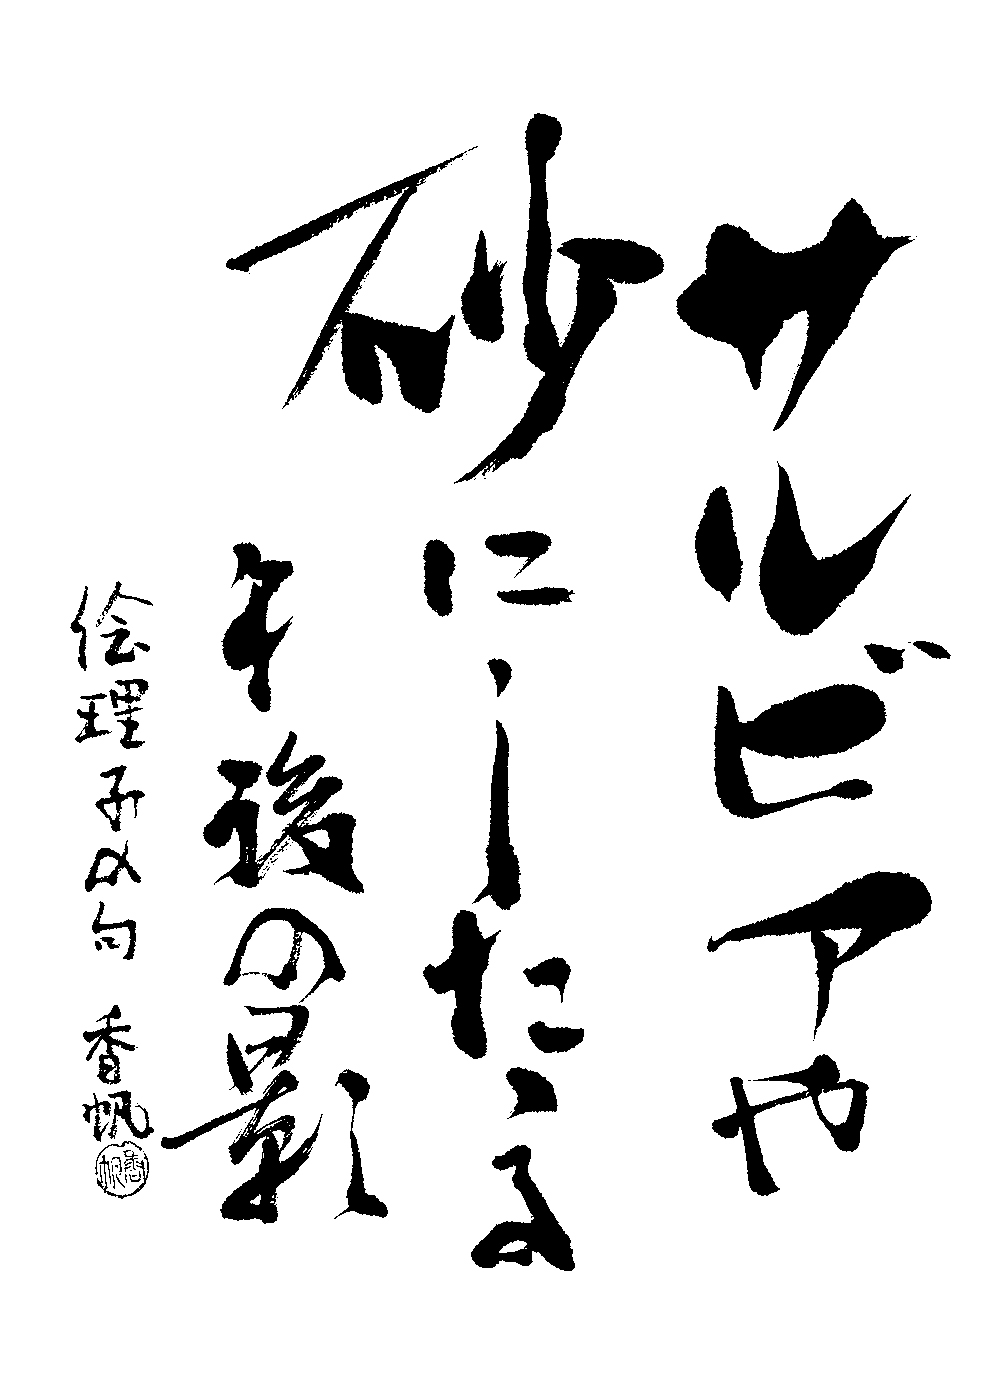 サルビアや
砂にしたゝる
午後の影
絵理子の句 香帆